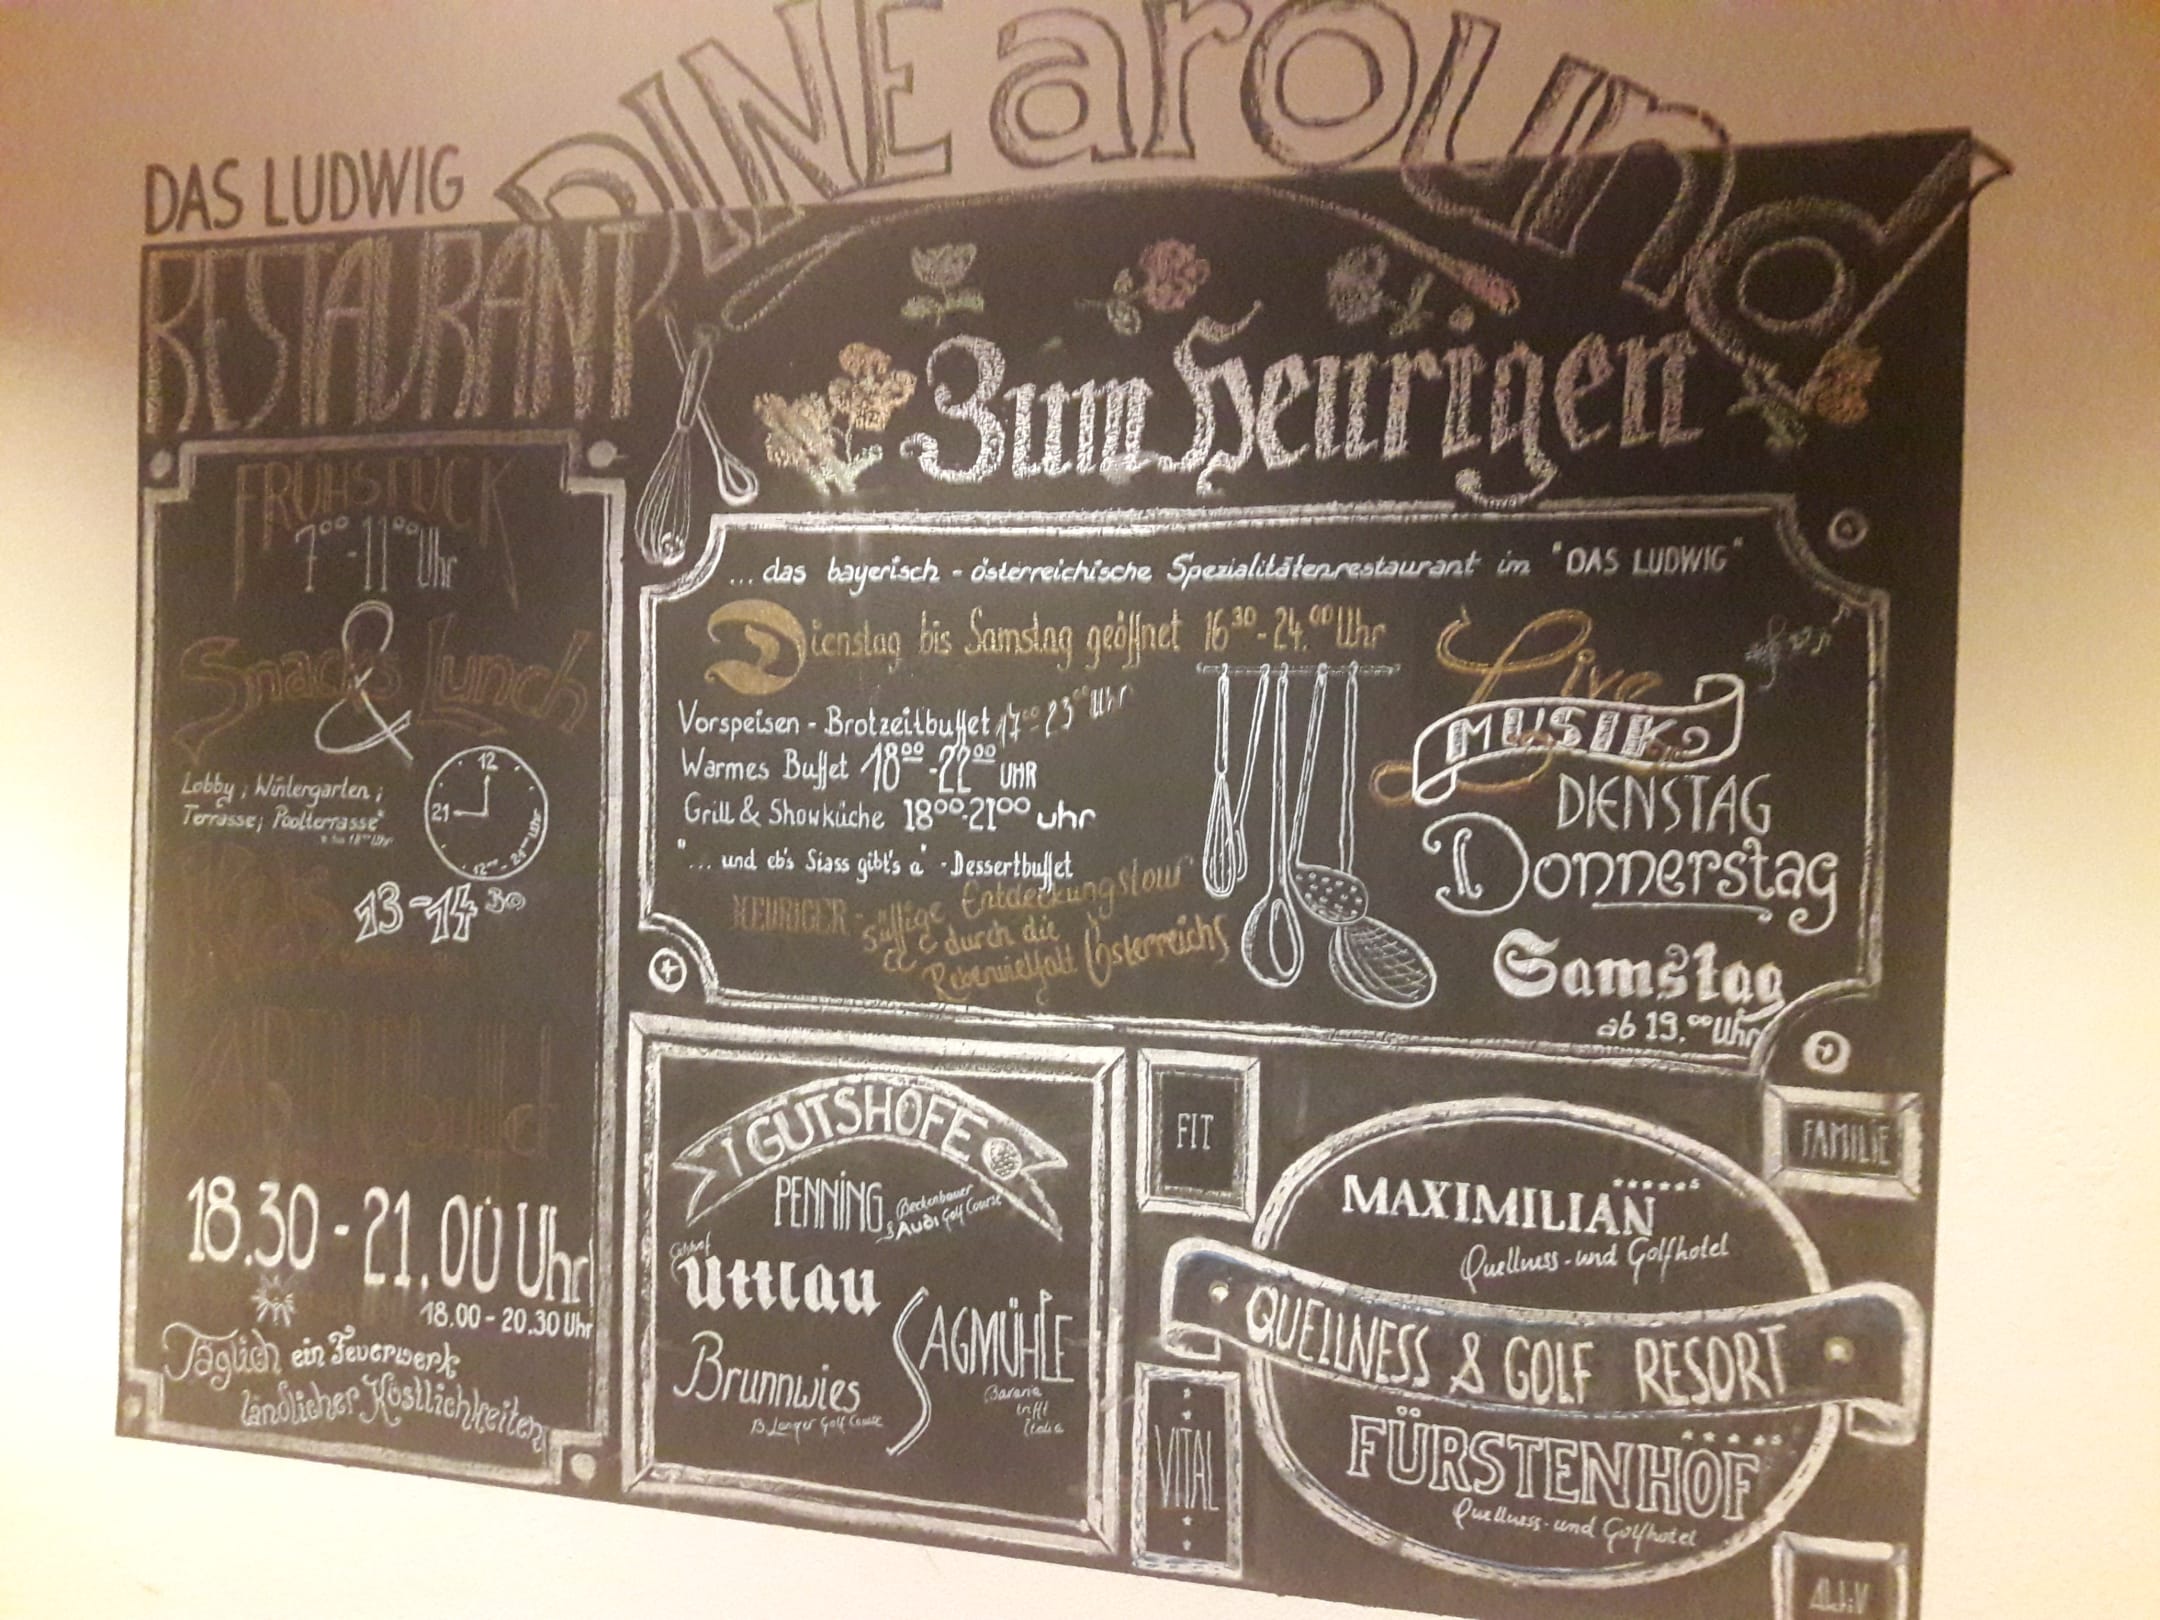 DINE around
DAS LUDWIG
RESTAURANT
FRÜHSTÜCK
7⁰⁰-11⁰⁰ Uhr
Snacks & Lunch
Lobby, Wintergarten,
Terrasse, Poolterrasse*
12
21
13-14³⁰
18.30 - 21.00 Uhr
18.00 - 20.30 Uhr
Täglich ein Feuerwerk
ländlicher Köstlichkeiten
Zum Heurigen
... das bayerisch - österreichische Spezialitätenrestaurant im "DAS LUDWIG"
Dienstag bis Samstag geöffnet 16³⁰-24.⁰⁰ Uhr
Vorspeisen - Brotzeitbuffet 17⁰⁰-23⁰⁰ Uhr
Warmes Buffet 18⁰⁰-22⁰⁰ UHR
Grill & Showküche 18⁰⁰-21⁰⁰ uhr
"... und eb's Siass gibt's a" - Dessertbuffet
HEURIGER - süffige Entdeckungstour
durch die
Rebenvielfalt Österreichs
Live
MUSIK
DIENSTAG
Donnerstag
Samstag
ab 19.⁰⁰ Uhr
GUTSHÖFE
PENNING Beckenbauer
& AUDI Golf Course
Gutshof
Uttlau
SAGMÜHLE
Bavaria
trifft
Italia
Brunnwies
B. Langer Golf Course
FIT
FAMILIE
MAXIMILIAN
Quellness- und Golfhotel
QUELLNESS & GOLF RESORT
VITAL
FÜRSTENHOF
Quellness- und Golfhotel
AktiV